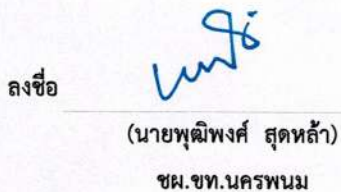 ลงชื่อ
(นายพุฒิพงศ์ สุดหล้า)
ชผ.ขท.นครพนม